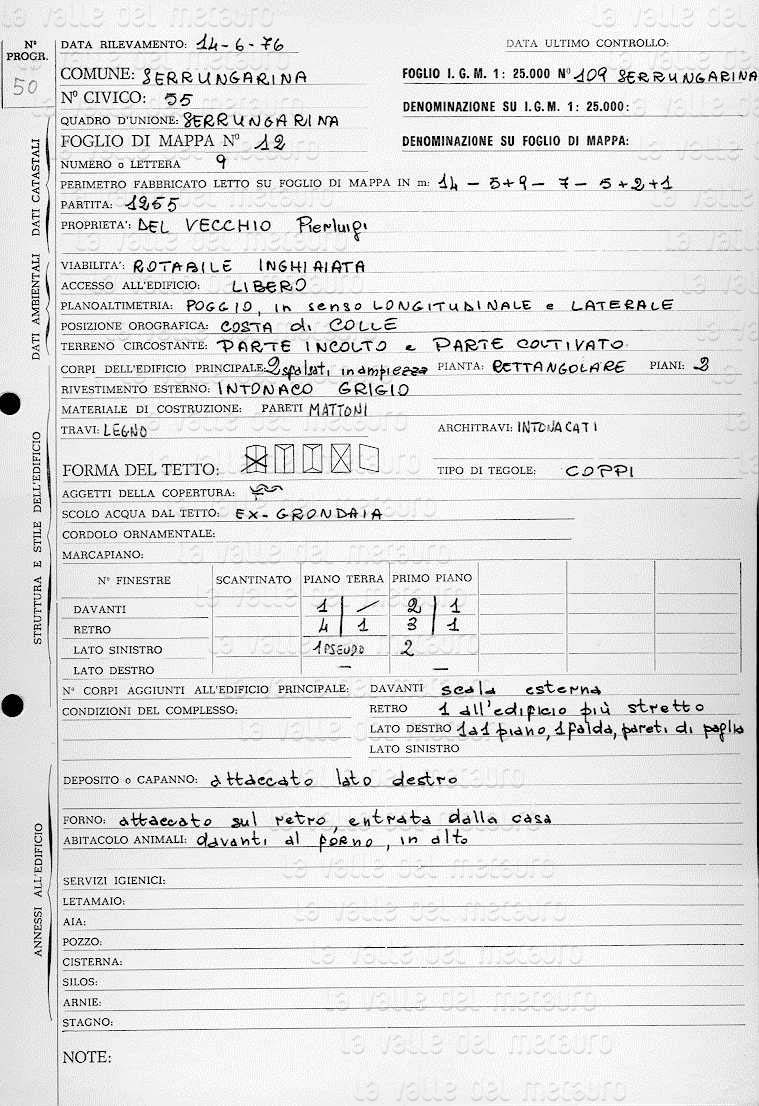 Nº PROGR. 50
DATA RILEVAMENTO: 14-6-76 DATA ULTIMO CONTROLLO:
COMUNE: SERRUNGARINA FOGLIO I.G.M. 1: 25.000 Nº 109 SERRUNGARINA
Nº CIVICO: 55 DENOMINAZIONE SU I.G.M. 1: 25.000:
QUADRO D'UNIONE: SERRUNGARINA
FOGLIO DI MAPPA Nº 12 DENOMINAZIONE SU FOGLIO DI MAPPA:
NUMERO o LETTERA 9
PERIMETRO FABBRICATO LETTO SU FOGLIO DI MAPPA IN m: 14 - 5+9 - 7 - 5+2+1
PARTITA: 1255
PROPRIETA': DEL VECCHIO Pierluigi
DATI CATASTALI
VIABILITA': ROTABILE INGHIAIATA
ACCESSO ALL'EDIFICIO: LIBERO
PLANOALTIMETRIA: POGGIO, in senso LONGITUDINALE e LATERALE
POSIZIONE OROGRAFICA: COSTA di COLLE
TERRENO CIRCOSTANTE: PARTE INCOLTO e PARTE COLTIVATO
DATI AMBIENTALI
CORPI DELL'EDIFICIO PRINCIPALE: 2 sfalsati in ampiezza PIANTA: RETTANGOLARE PIANI: 2
RIVESTIMENTO ESTERNO: INTONACO GRIGIO
MATERIALE DI COSTRUZIONE: PARETI MATTONI
TRAVI: LEGNO ARCHITRAVI: INTONACATI
FORMA DEL TETTO: TIPO DI TEGOLE: COPPI
AGGETTI DELLA COPERTURA:
SCOLO ACQUA DAL TETTO: EX-GRONDAIA
CORDOLO ORNAMENTALE:
MARCAPIANO:
Nº FINESTRE SCANTINATO PIANO TERRA PRIMO PIANO
DAVANTI 1 | - 2 | 1
RETRO 4 | 1 3 | 1
LATO SINISTRO 1 PSEUDO 2
LATO DESTRO - -
STRUTTURA E STILE DELL'EDIFICIO
Nº CORPI AGGIUNTI ALL'EDIFICIO PRINCIPALE: DAVANTI scala esterna
CONDIZIONI DEL COMPLESSO: RETRO 1 all'edificio più stretto
LATO DESTRO 1 a 1 piano, 1 falda, pareti di paglia
LATO SINISTRO
DEPOSITO o CAPANNO: attaccato lato destro
FORNO: attaccato sul retro, entrata dalla casa
ABITACOLO ANIMALI: davanti al forno, in alto
SERVIZI IGIENICI:
LETAMAIO:
AIA:
POZZO:
CISTERNA:
SILOS:
ARNIE:
STAGNO:
ANNESSI ALL'EDIFICIO
NOTE:
la valle del metauro